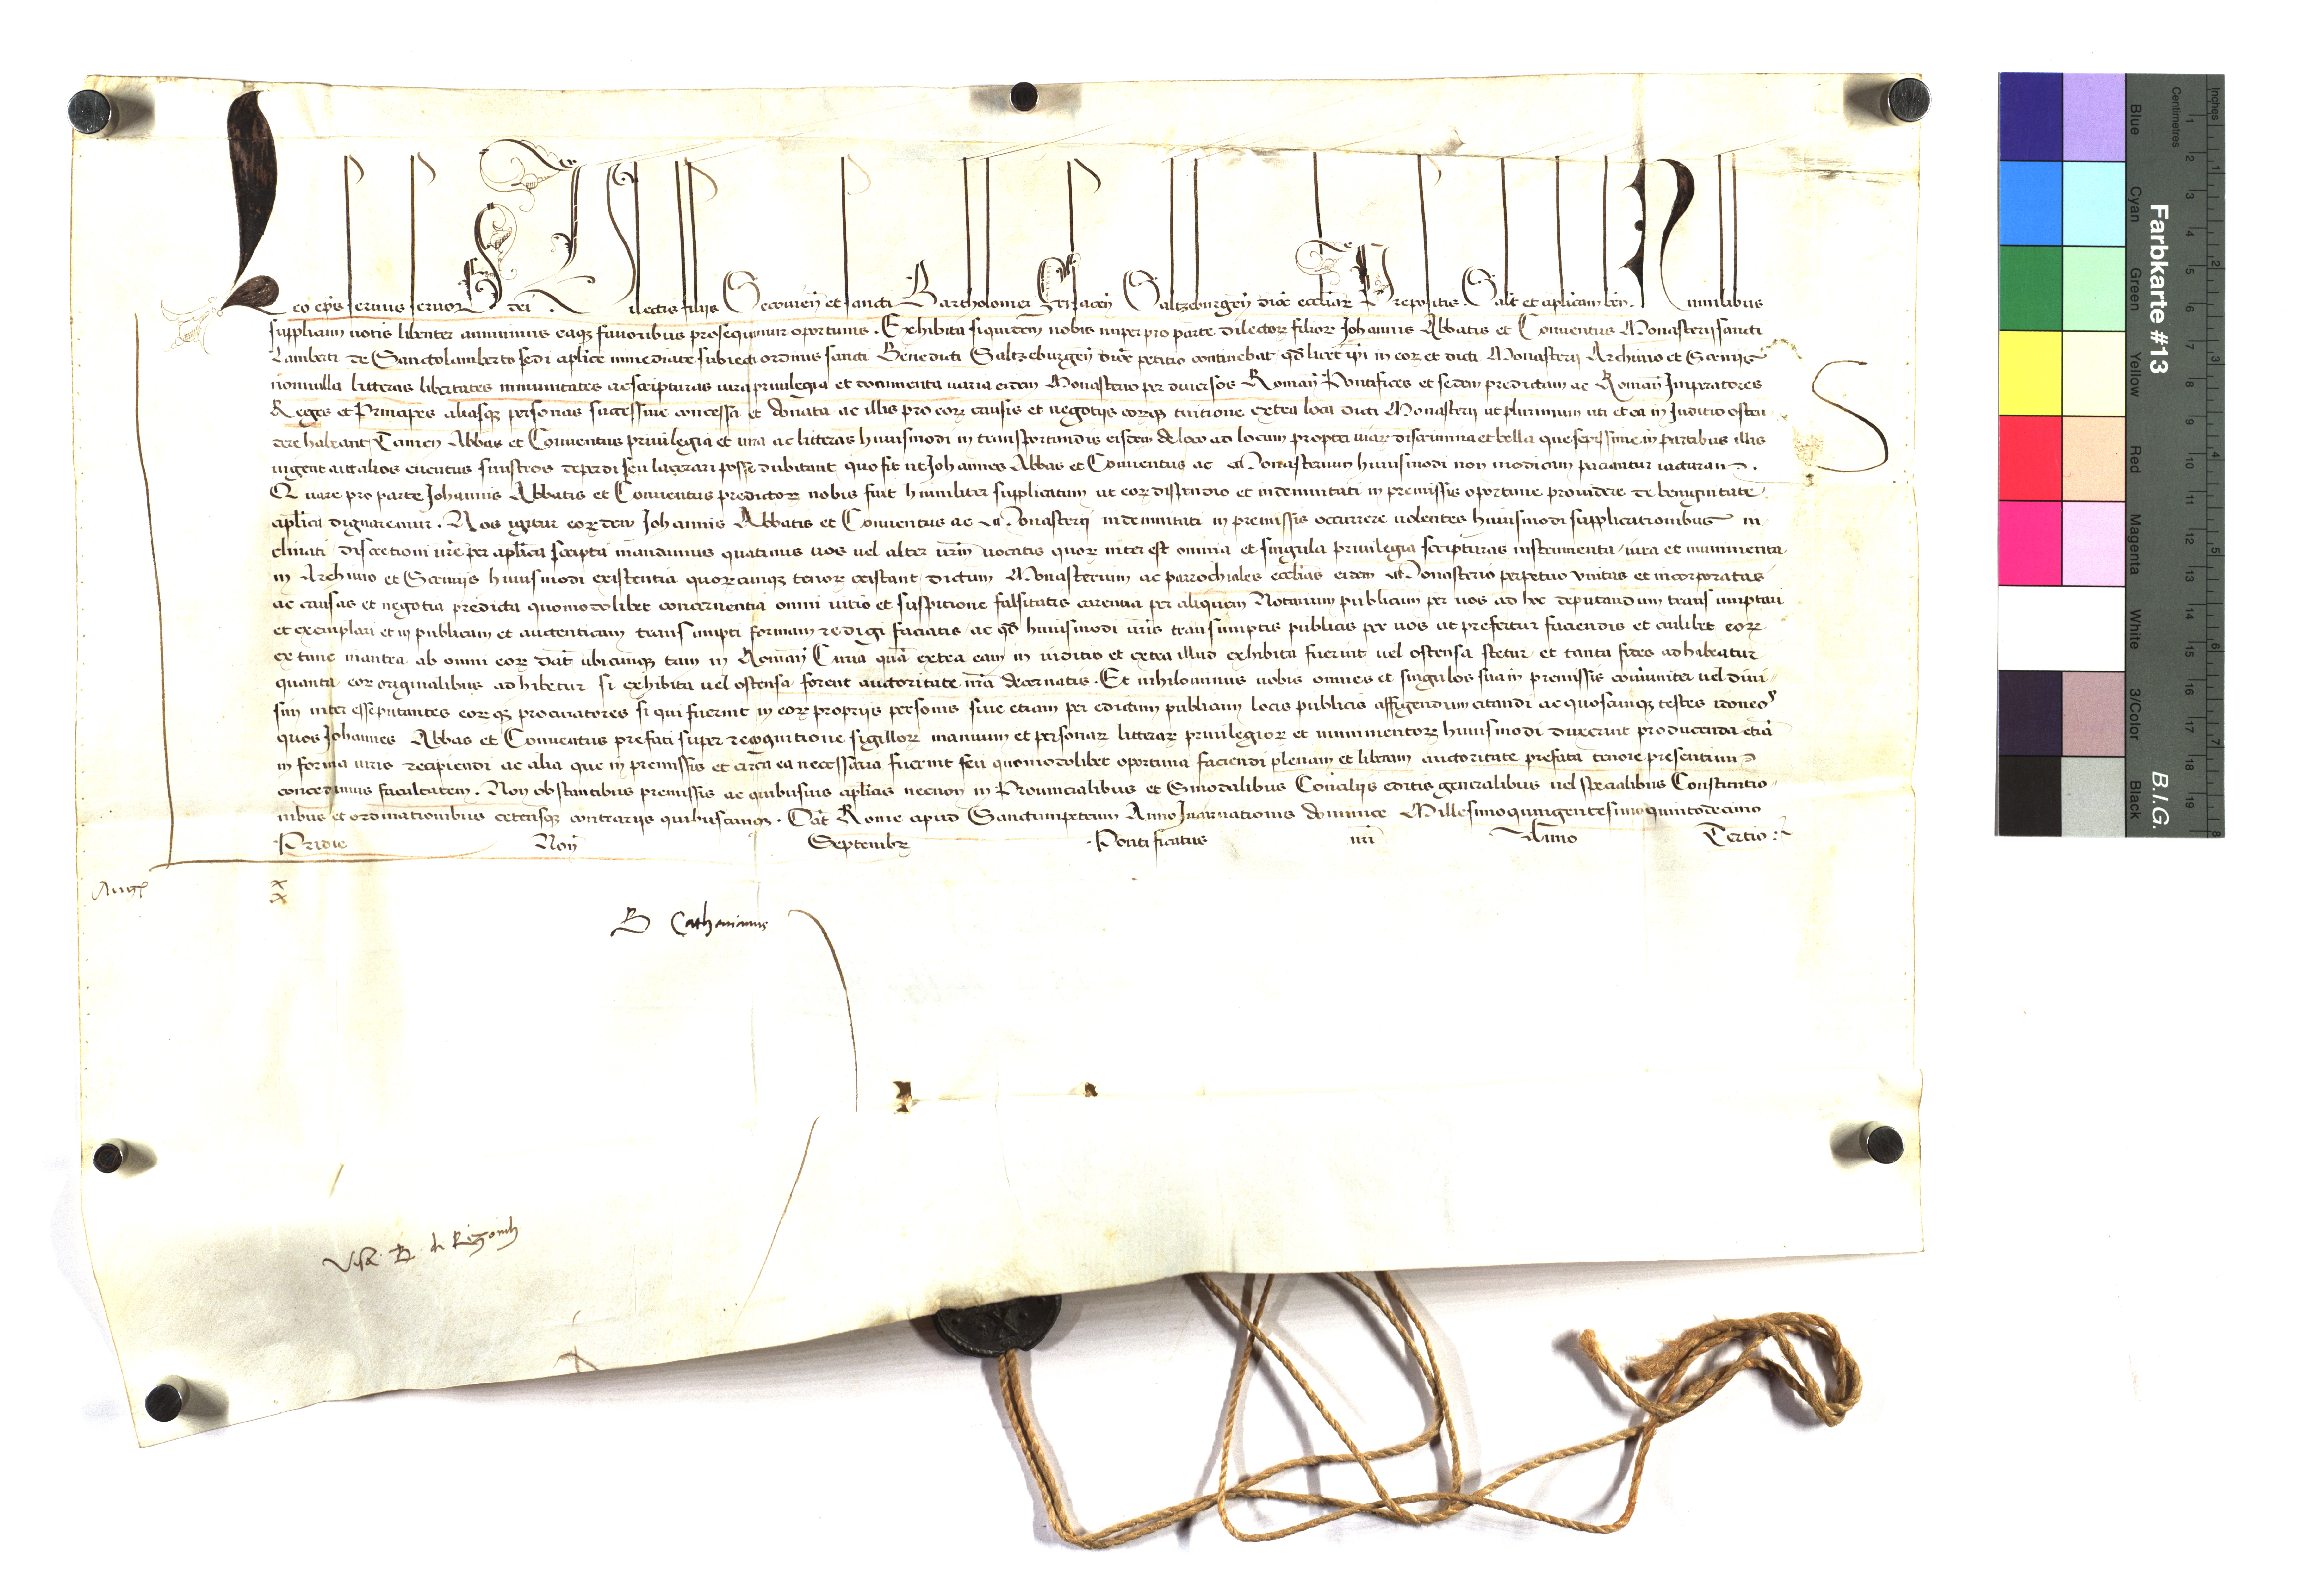 Leo ep̄s servus servor dei Dilectis filijs Secovieñ et sancti Bartholomei Frisaceñ Saltzeburgeñ dioc̄ eccl̄iar Prepositis Salt̄ et ap̄licam beñ. Humilibus
supplicum votis libenter annuimus eaq favoribus prosequimur oportunis. Exhibita siquidem nobis nuper pro parte dilector filior Johannis Abbatis et Conventus Monasterij sancti
Lamberti de Sanctolamberto sedi ap̄lice immediate subiecti ordinis sancti Benedicti Saltzeburgeñ dioc̄ petitio continebat qd̄ licet ip̄i in eor et dicti Monasterij Archivio et Scrinijs
nonnulla litteras libertates immunitates ac scripturas iura privilegia et documenta varia eidem Monasterio per diversos Romañ Pontifices et sedem predictam ac Romañ Imperatores
Reges et Principes aliasq personas successive concessa et donata ac illis pro eor causis et negotijs eorq tuitione extra loca dicti Monasterij ut plurimum uti et ea in Juditio osten
dere habeant Tamen Abbas et Conventus privilegia et iura ac litteras huiusmodi in transportandis eisdem de loco ad locum propter viar discrimina et bella que sepissime in partibus illis
vigent ac alios eventus sinistros deperdi seu lacerari posse dubitant quo fit ut Johannes Abbas et Conventus ac Monasterium huiusmodi non modicam patiantur iacturam.
Quare pro parte Johannis Abbatis et Conventus predictor nobis fuit humiliter supplicatum ut eor dispendio et indemnitati in premissis oportune providere de benignitate
ap̄lica dignaremur. Nos igitur eordem Johannis Abbatis et Conventus ac Monasterij indemnitati in premissis occurrere volentes huiusmodi supplicationibus in
clinati discretioni vr̄e per ap̄lica scripta mandamus quatinus vos vel alter vr̄m vocatis quor interest omnia et singula privilegia scripturas instrumenta iura et munimenta
in Archivio et Scrinijs huiusmodi existentia quorcunq tenor existant dictum Monasterium ac parrochiales eccl̄ias eidem Monasterio perpetuo unitas et incorporatas
ac causas et negotia predicta quomodolibet concernentia omni vitio et suspitione falsitatis carentia per aliquem Notarium publicum per vos ad hoc deputandum transumptari
et exemplari et in publicam et autenticam transumpti formam redigi faciatis ac qd̄ huiusmodi vr̄is transumptis publicis per vos ut prefertur faciendis et cuilibet eor
ex tunc inantea ab omni eor dat̄ ubicunq tam in Romañ Curia quā extra eam in iuditio et extra illud exhibita fuerint vel ostensa stetur et tanta fides adhibeatur
quanta eor originalibus adhibetur si exhibita vel ostensa forent auctoritate nr̄a decernatis. Et nihilominus vobis omnes et singulos sua in premissis coīuniter vel divi
sim interesse putantes eorq procuratores si qui fuerint in eor proprijs personis sive etiam per edictum publicum locis publicis affigendum citandi ac quoscunq testes idoneos
quos Johannes Abbas et Conventus prefati super recognitione sigillor manuum et personar litterar privilegior et munimentor huiusmodi duxerint producendā etiā
in forma iuris recipiendi ac alia que in premissis et circa ea necessaria fuerint seu quomodolibet oportuna faciendi plenam et liberam auctoritate prefata tenore presentium
concedimus facultatem. Non obstantibus premissis ac quibusvis ap̄licis necnon in Provincialibus et Sinodalibus Concilijs editis generalibus vel specialibus Constitutio
nibus et ordinationibus ceterisq contrarijs quibuscunq. Dat̄ Rome apud Sanctumpetrum Anno Incarnationis dominice Millesimoquingentesimoquintodecimo
Pridie Noñ Septembr Pontificatus nr̄i Anno Tertio
Aug
x
x
B Cathanianus